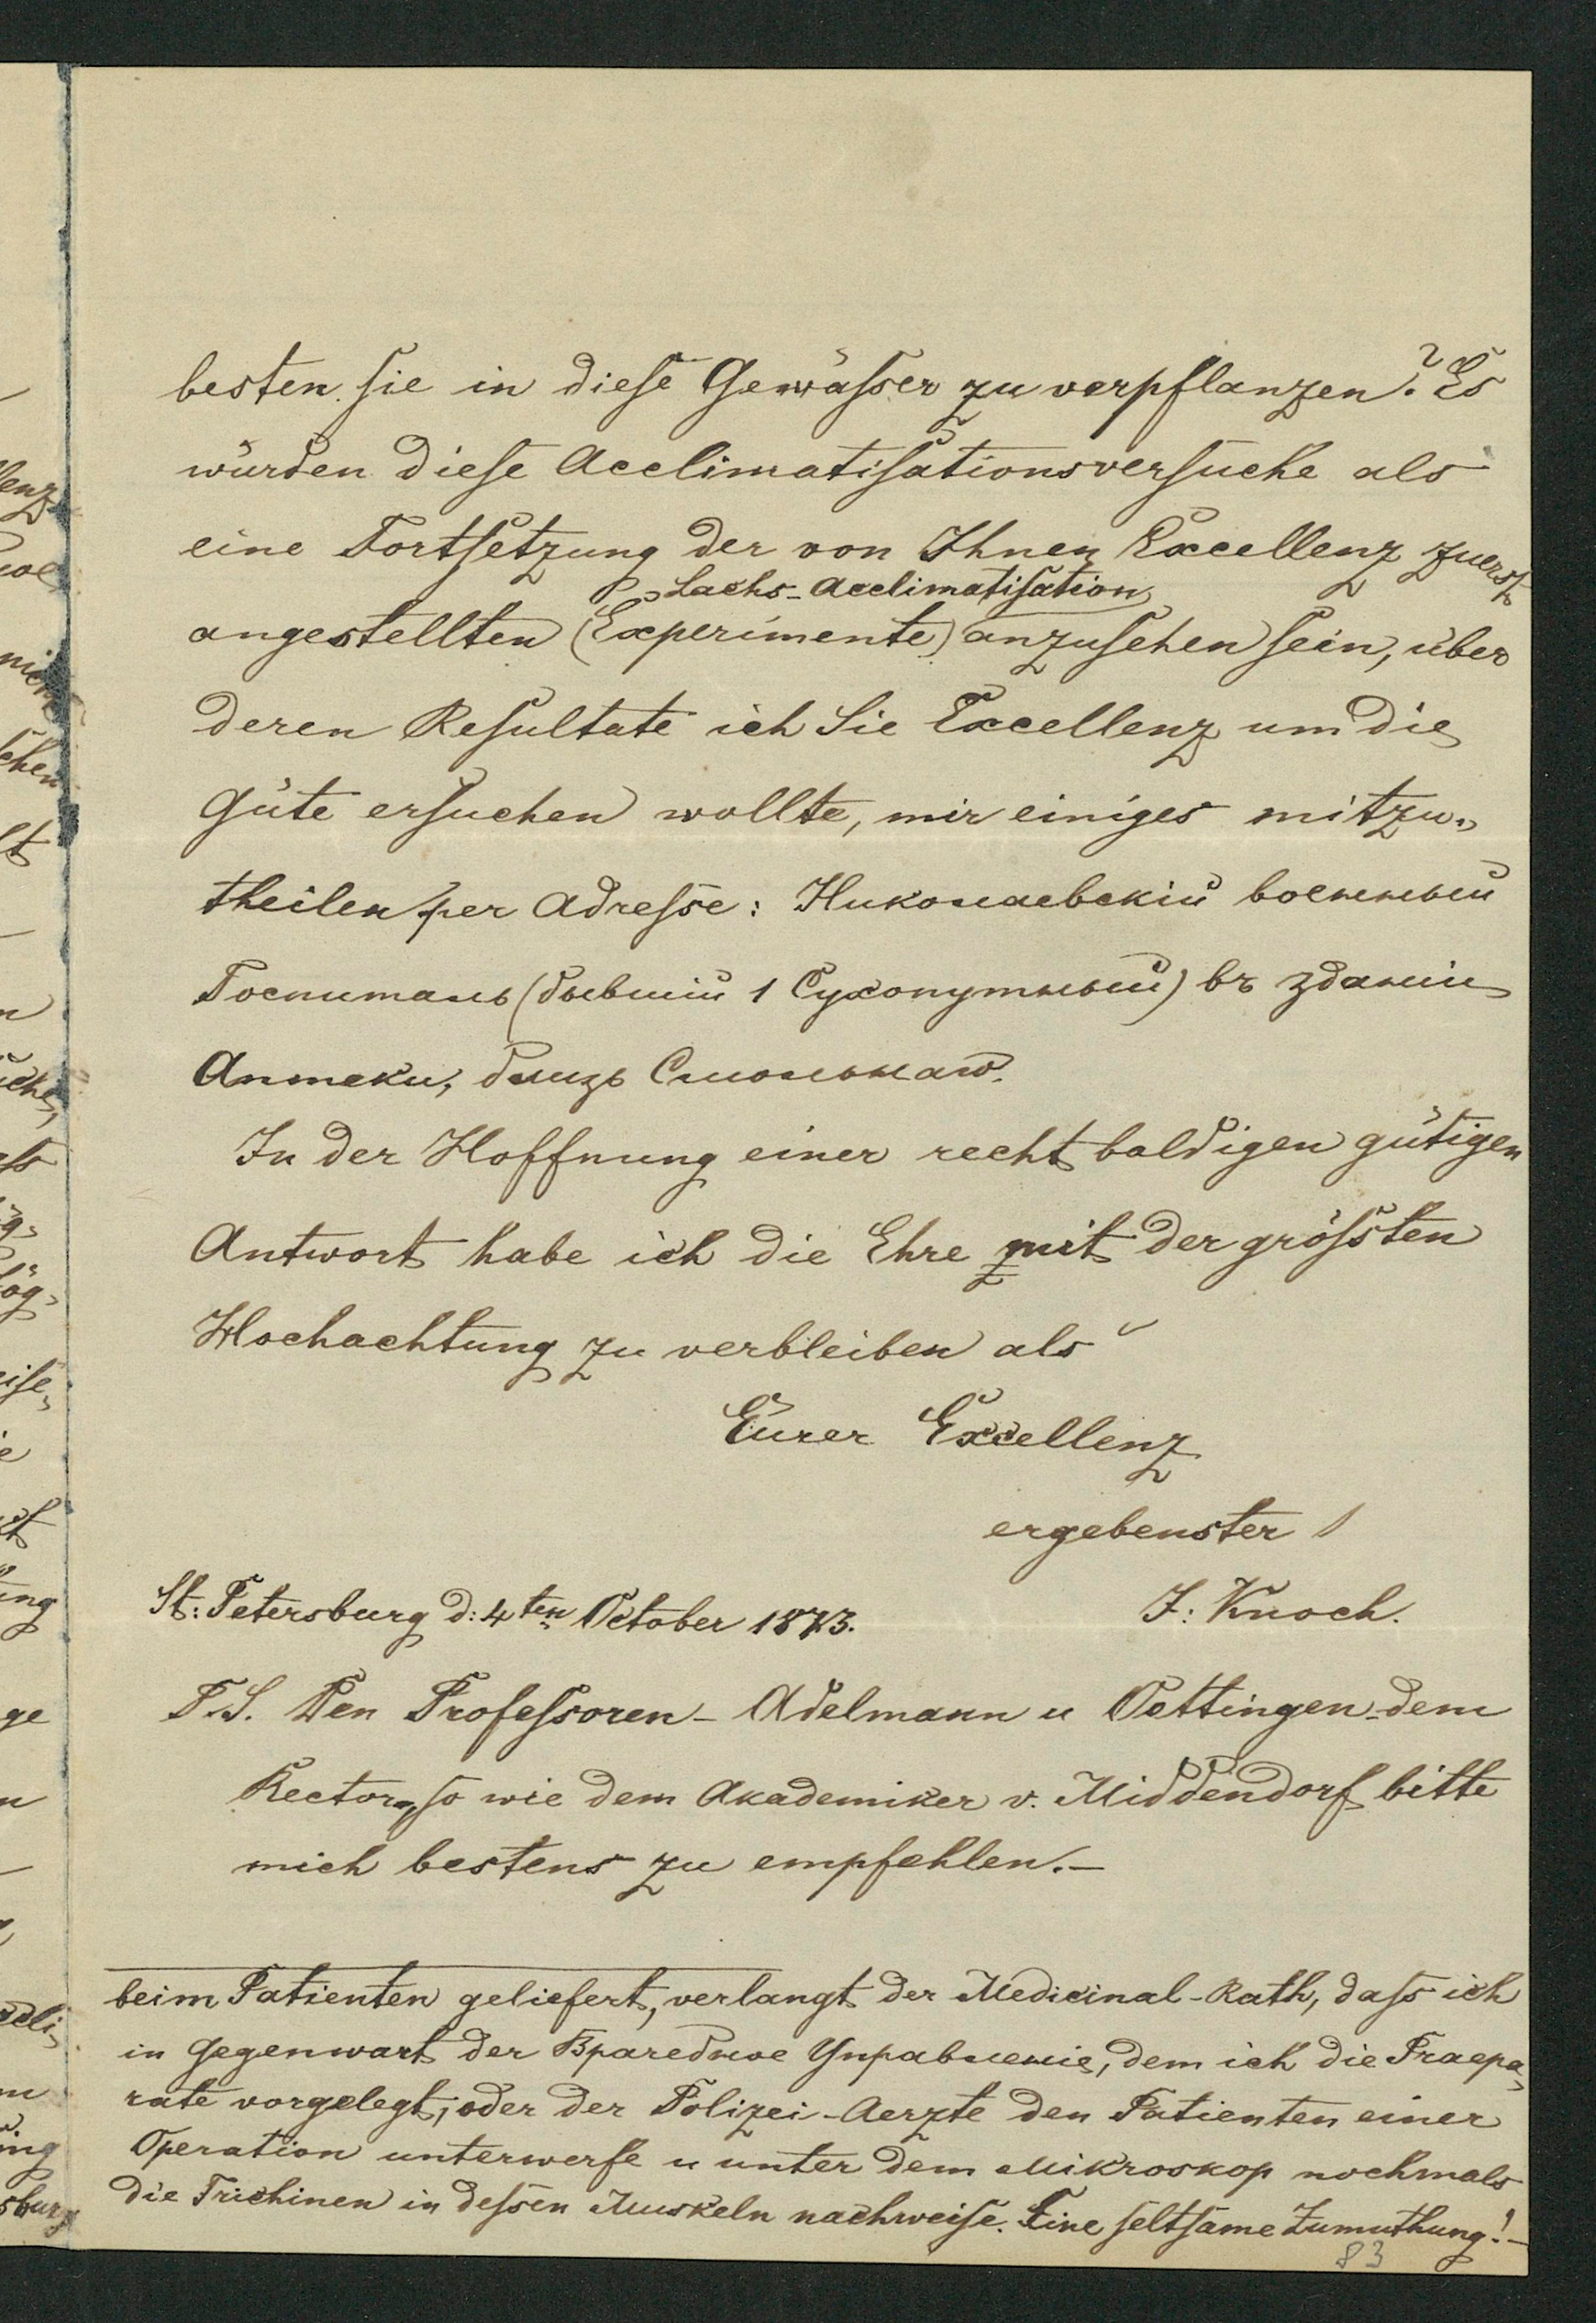 besten sie in diese Gewässer zu verpflanzen? Es
würden diese Acclimatisationsversuche als
eine Fortsetzung der von Ihnen Excellenz zuerst
Lachs-Acclimatisation
angestellten (Experimente) anzusehen sein, über
deren Resultate ich Sie Excellenz um die
Güte ersuchen wollte, mir einiges mitzu-
theilen per Adresse: Николаевскій военный
Госпиталь (бывшій 1 Сухопутный) въ зданіи
Аптеки, близь Смольнаго.
In der Hoffnung einer recht baldigen gütigen
Antwort habe ich die Ehre mit der grössten
Hochachtung zu verbleiben als
Eurer Excellenz
ergebenster
St: Petersburg d: 4ten October 1873.
J: Knoch.
P.S. Den Professoren - Adelmann u Oettingen - dem
Rector, so wie dem Akademiker v. Middendorf bitte
mich bestens zu empfehlen.-
beim Patienten geliefert, verlangt der Medicinal-Rath, dass ich
in Gegenwart der Врачебное Управленіе, dem ich die Praepa-
rate vorgelegt, oder der Polizei-Aerzte den Patienten einer
Operation unterwerfe u unter dem Mikroskop nochmals
die Trichinen in dessen Muskeln nachweise. Eine seltsame Zumuthung!-
83